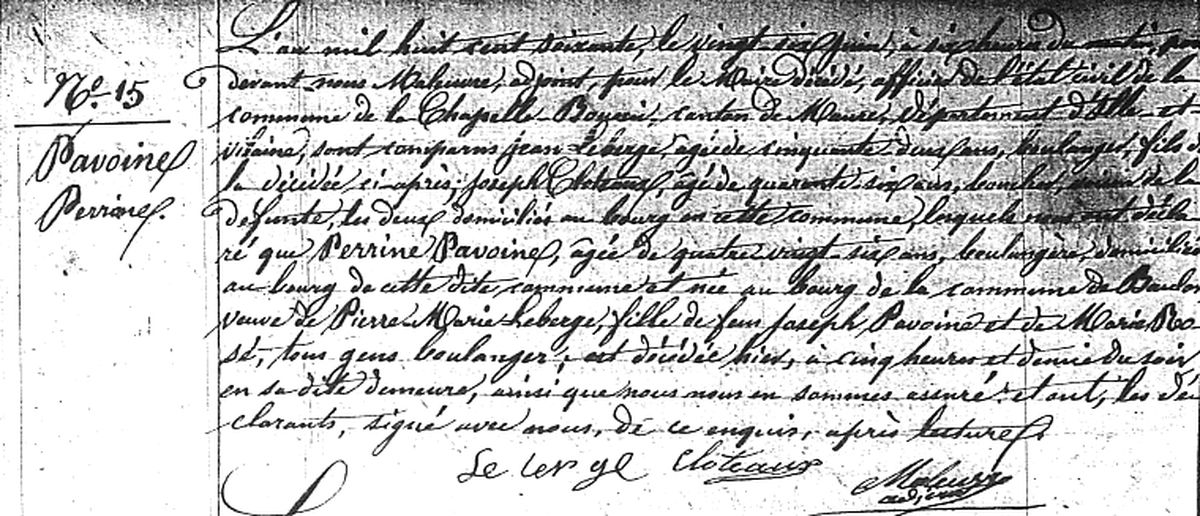 L'an mil huit cent soixante, le vingt-six juin, à six heures du matin, par
devant nous Maleuvre, adjoint, pour le Maire décédé, officier de l'état civil de la
N° 15
commune de la Chapelle-Bouëxic, canton de Maure, département d'Ille-et
vilaine, sont comparus jean Leberge, âgé de cinquante-deux ans, boulanger, fils de
Pavoine
Perrine.
la décédée ci-après, joseph Cloteaux, âgé de quarante six ans, boucher, de la
défunte, les deux domiciliés au bourg en cette commune, lesquels nous ont décla-
ré que Perrine Pavoine, âgée de quatre-vingt-six ans, boulangère, domiciliée
au bourg de cette dite commune et née au bourg de la commune de
veuve de Pierre-Marie Leberge, fille de feu Joseph Pavoine et de Marie Ro-
sé, tous gens boulanger, est décédée hier, à cinq heures et demie du soir
en sa dite demeure, ainsi que nous nous en sommes assuré: et ont, les dé
clarants, signé avec nous, de ce enquis, après lecture.
Le berge Cloteaux Maleuvre
adjoint